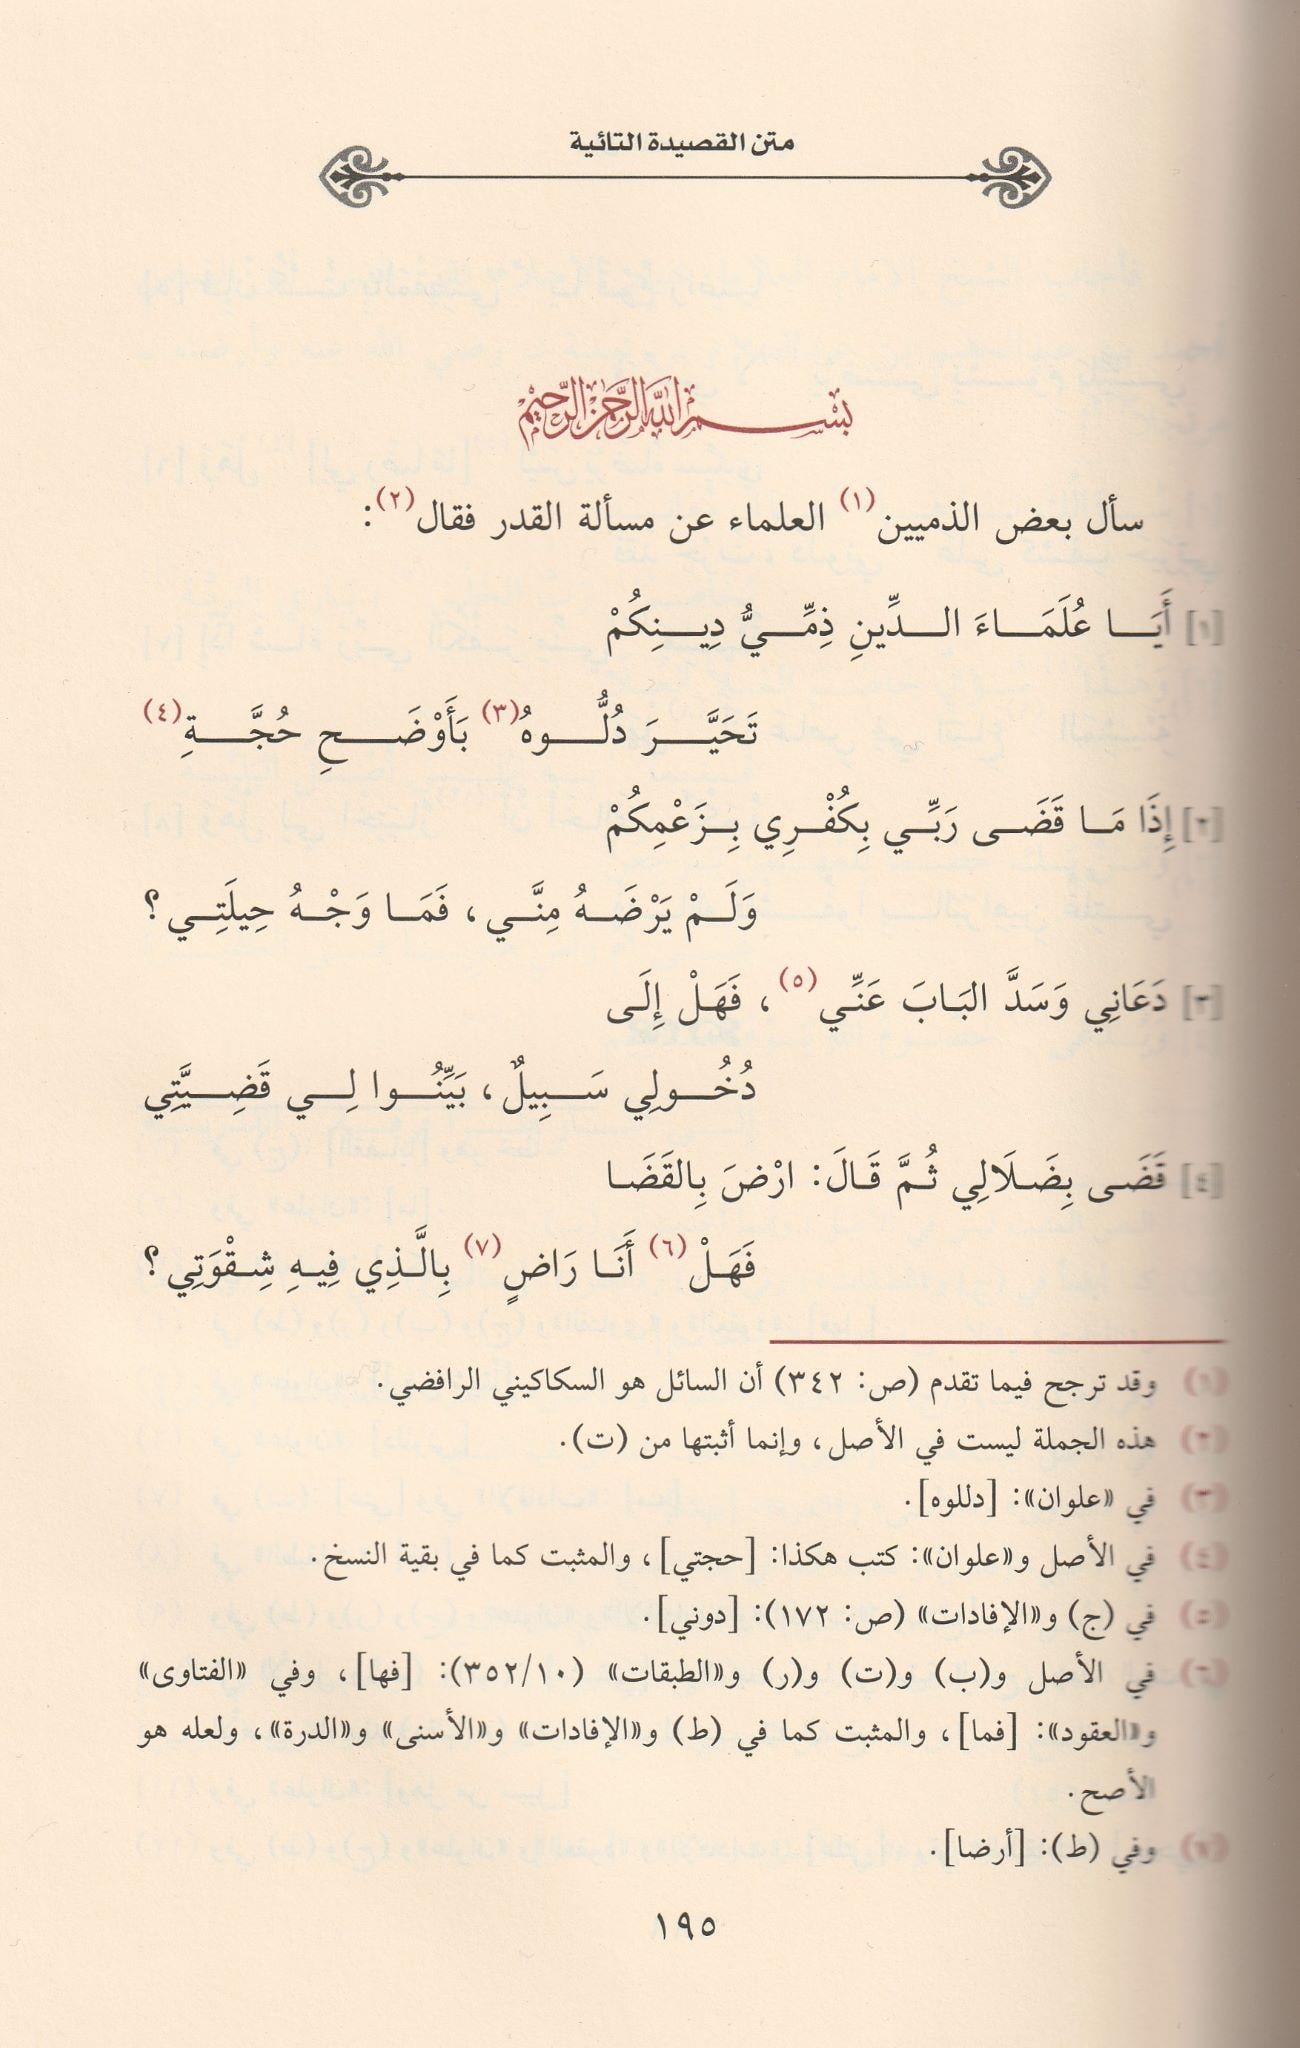 متن القصيدة التائية
بسم الله الرحمن الرحيم
سأل بعض الذميين(١) العلماء عن مسألة القدر فقال(٢):
[١] أَيَا عُلَمَاءَ الدِّينِ ذِمِّيُّ دِينِكُمْ
تَحَيَّرَ دُلُّوهُ(٣) بَأَوْضَحِ حُجَّةِ(٤)
[٢] إِذَا مَا قَضَى رَبِّي بِكُفْرِي بِزَعْمِكُمْ
وَلَمْ يَرْضَهُ مِنَّي، فَمَا وَجْهُ حِيلَتِي؟
[٣] دَعَانِي وَسَدَّ البَابَ عَنِّي(٥)، فَهَلْ إِلَى
دُخُولِي سَبِيلٌ، بَيِّنُوا لِي قَضِيَّتِي
[٤] قَضَى بِضَلَالِي ثُمَّ قَالَ: ارْضَ بِالقَضَا
فَهَلْ(٦) أَنَا رَاضٍ(٧) بِالَّذِي فِيهِ شِقْوَتِي؟
(١) وقد ترجح فيما تقدم (ص: ٣٤٢) أن السائل هو السكاكيني الرافضي.
(٢) هذه الجملة ليست في الأصل، وإنما أثبتها من (ت).
(٣) في «علوان»: [دللوه].
(٤) في الأصل و«علوان»: كتب هكذا: [حجتي]، والمثبت كما في بقية النسخ.
(٥) في (ج) و«الإفادات» (ص: ١٧٢): [دوني].
(٦) في الأصل و(ب) و(ت) و(ر) و«الطبقات» (٣٥٢/١٠): [فها]، وفي «الفتاوى»
و«العقود»: [فما]، والمثبت كما في (ط) و«الإفادات» و«الأسنى» و«الدرة»، ولعله هو
الأصح.
(٧) وفي (ط): [أرضا].
١٩٥